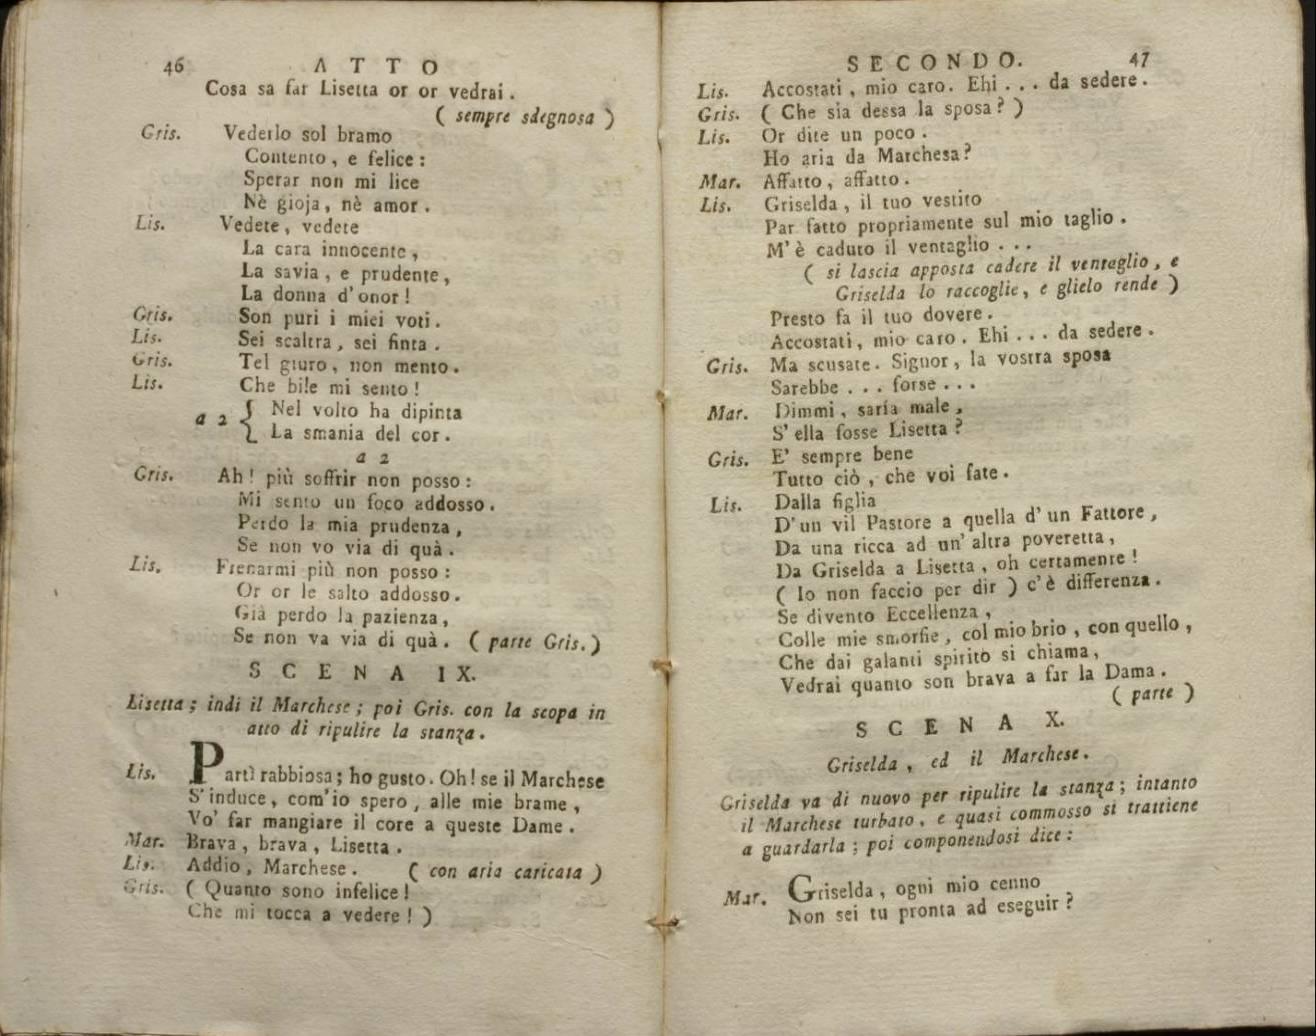 46 ATTO
Cosa sa far Lisetta or or vedrai.
( sempre sdegnosa )
Gris. Vederlo sol bramo
Contento, e felice:
Sperar non mi lice
Nè gioja, nè amor.
Lis. Vedete, vedete
La cara innocente,
La savia, e prudente,
La donna d'onor!
Gris. Son puri i miei voti.
Lis. Sei scaltra, sei finta.
Gris. Tel giuro, non mento.
Lis. Che bile mi sento!
a 2 { Nel volto ha dipinta
La smania del cor.
a 2
Gris. Ah! più soffrir non posso:
Mi sento un foco addosso.
Perdo la mia prudenza,
Se non vo via di quà.
Lis. Frenarmi più non posso:
Or or le salto addosso.
Già perdo la pazienza,
Se non va via di quà. ( parte Gris.)
SCENA IX.
Lisetta; indi il Marchese; poi Gris. con la scopa in
atto di ripulire la stanza.
Lis. Partì rabbiosa; ho gusto. Oh! se il Marchese
S'induce, com'io spero, alle mie brame,
Vo' far mangiare il core a queste Dame.
Mar. Brava, brava, Lisetta.
Lis. Addio, Marchese. ( con aria caricata )
Gris. ( Quanto sono infelice!
Che mi tocca a vedere! )
SECONDO. 47
Lis. Accostati, mio caro. Ehi... da sedere.
Gris. ( Che sia dessa la sposa? )
Lis. Or dite un poco.
Ho aria da Marchesa?
Mar. Affatto, affatto.
Lis. Griselda, il tuo vestito
Par fatto propriamente sul mio taglio.
M'è caduto il ventaglio...
( si lascia apposta cadere il ventaglio, e
Griselda lo raccoglie, e glielo rende )
Presto fa il tuo dovere.
Accostati, mio caro. Ehi... da sedere.
Gris. Ma scusate. Signor, la vostra sposa
Sarebbe... forse...
Mar. Dimmi, saría male,
S'ella fosse Lisetta?
Gris. E' sempre bene
Tutto ciò, che voi fate.
Lis. Dalla figlia
D'un vil Pastore a quella d'un Fattore,
Da una ricca ad un'altra poveretta,
Da Griselda a Lisetta, oh certamente!
( Io non faccio per dir ) c'è differenza.
Se divento Eccellenza,
Colle mie smorfie, col mio brio, con quello,
Che dai galanti spirito si chiama,
Vedrai quanto son brava a far la Dama.
( parte )
SCENA X.
Griselda, ed il Marchese.
Griselda va di nuovo per ripulire la stanza; intanto
il Marchese turbato, e quasi commosso si trattiene
a guardarla; poi componendosi dice:
Mar. Griselda, ogni mio cenno
Non sei tu pronta ad eseguir?